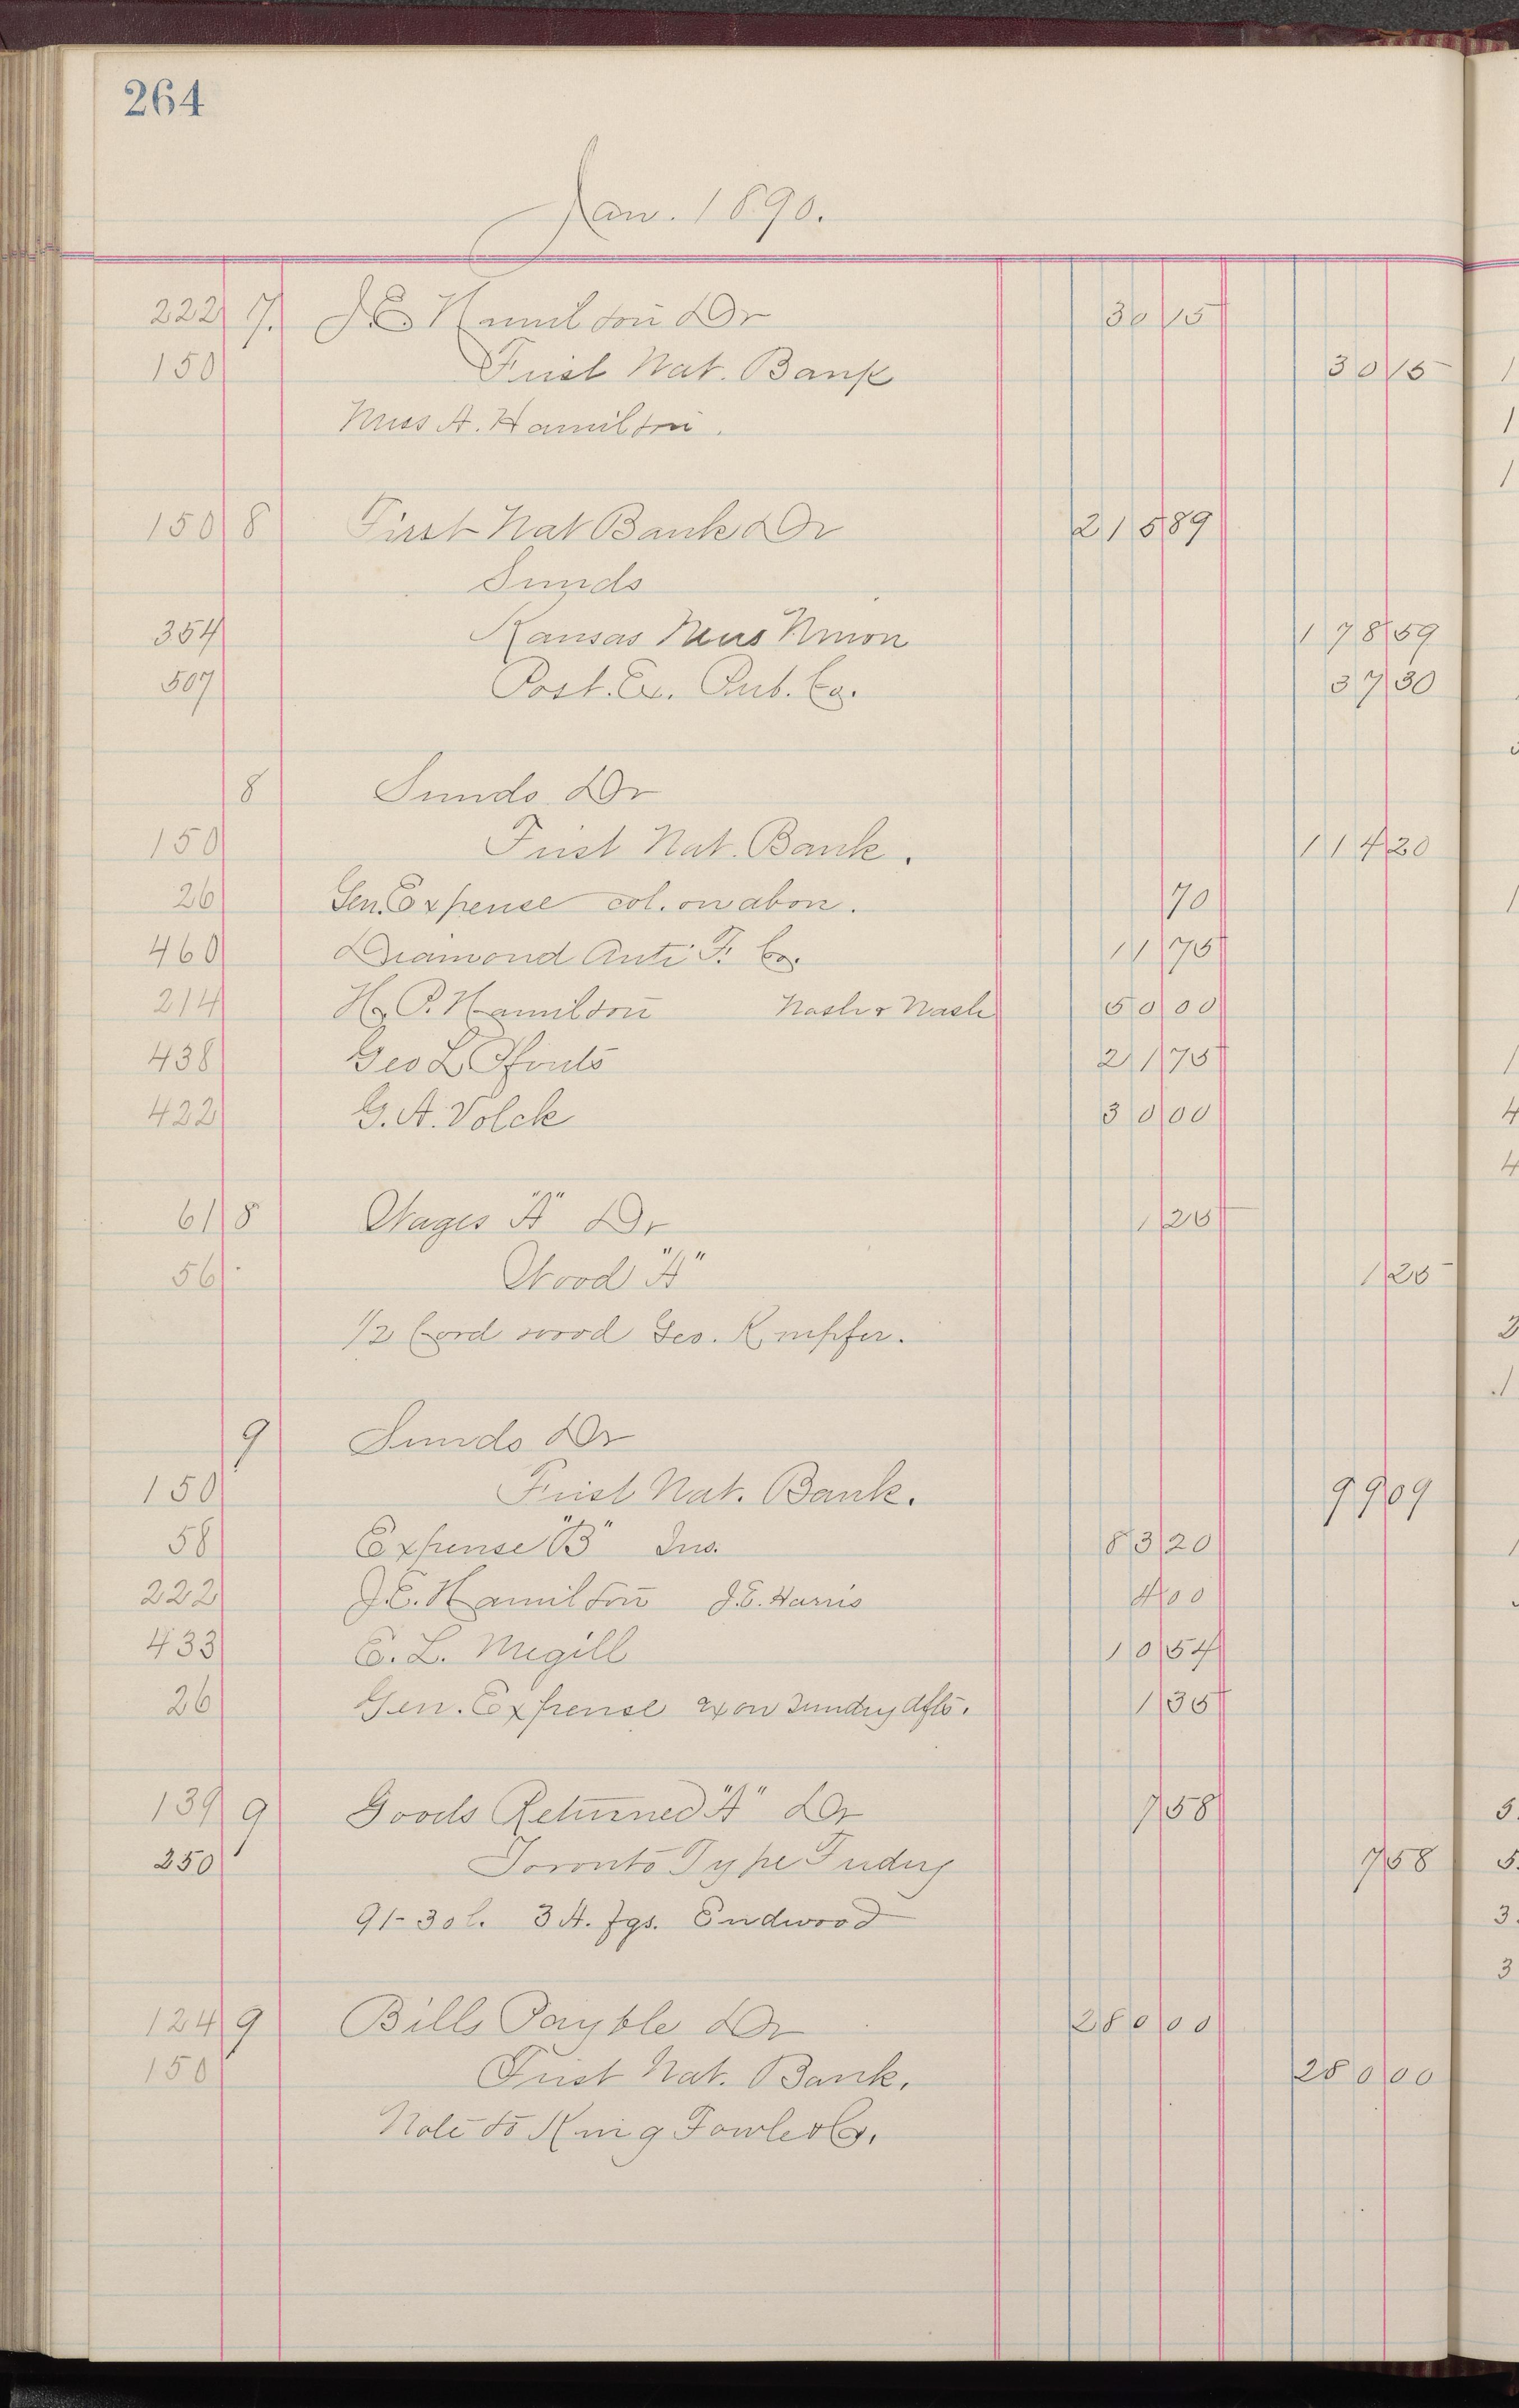 264
Jan. 1890.
222 7. J.E. Hamilton Dr 30 15
150 First Nat. Bank 30 15
Miss A. Hamilton.
150 8 First Nat Bank Dr 215 89
Sunds
354 Kansas News Union 178 59
507 Post. Ex. Pub. Co. 37 30
8 Sunds Dr
150 First Nat. Bank. 114 20
26 Gen. Expense col. on abov. 70
460 Diamond Anti F. Co. 11 75
214 H.P. Hamilton Nash & Nash 50 00
438 Geo L 21 75
422 G. A. Volck 30 00
61 8 Wages "A" Dr 1 25
56 Wood "A" 1 25
1/2 Cord wood Geo. Kumpfer.
9 Sunds Dr
150 First Nat. Bank. 99 09
58 Expense "B" Ins. 83 20
222 J.E. Hamilton J.E. Harris 4 00
433 E. L. Megill 10 54
26 Gen. Expense ex on Sundry dfts. 1 35
139 9 Goods Returned "A" Dr 7 58
250 Toronto Type Fndry 7 58
91- 30 l. 3 A. fgs. Endwood
124 9 Bills Payble Dr 280 00
150 First Nat. Bank. 280 00
Note to King Fowler & Co.